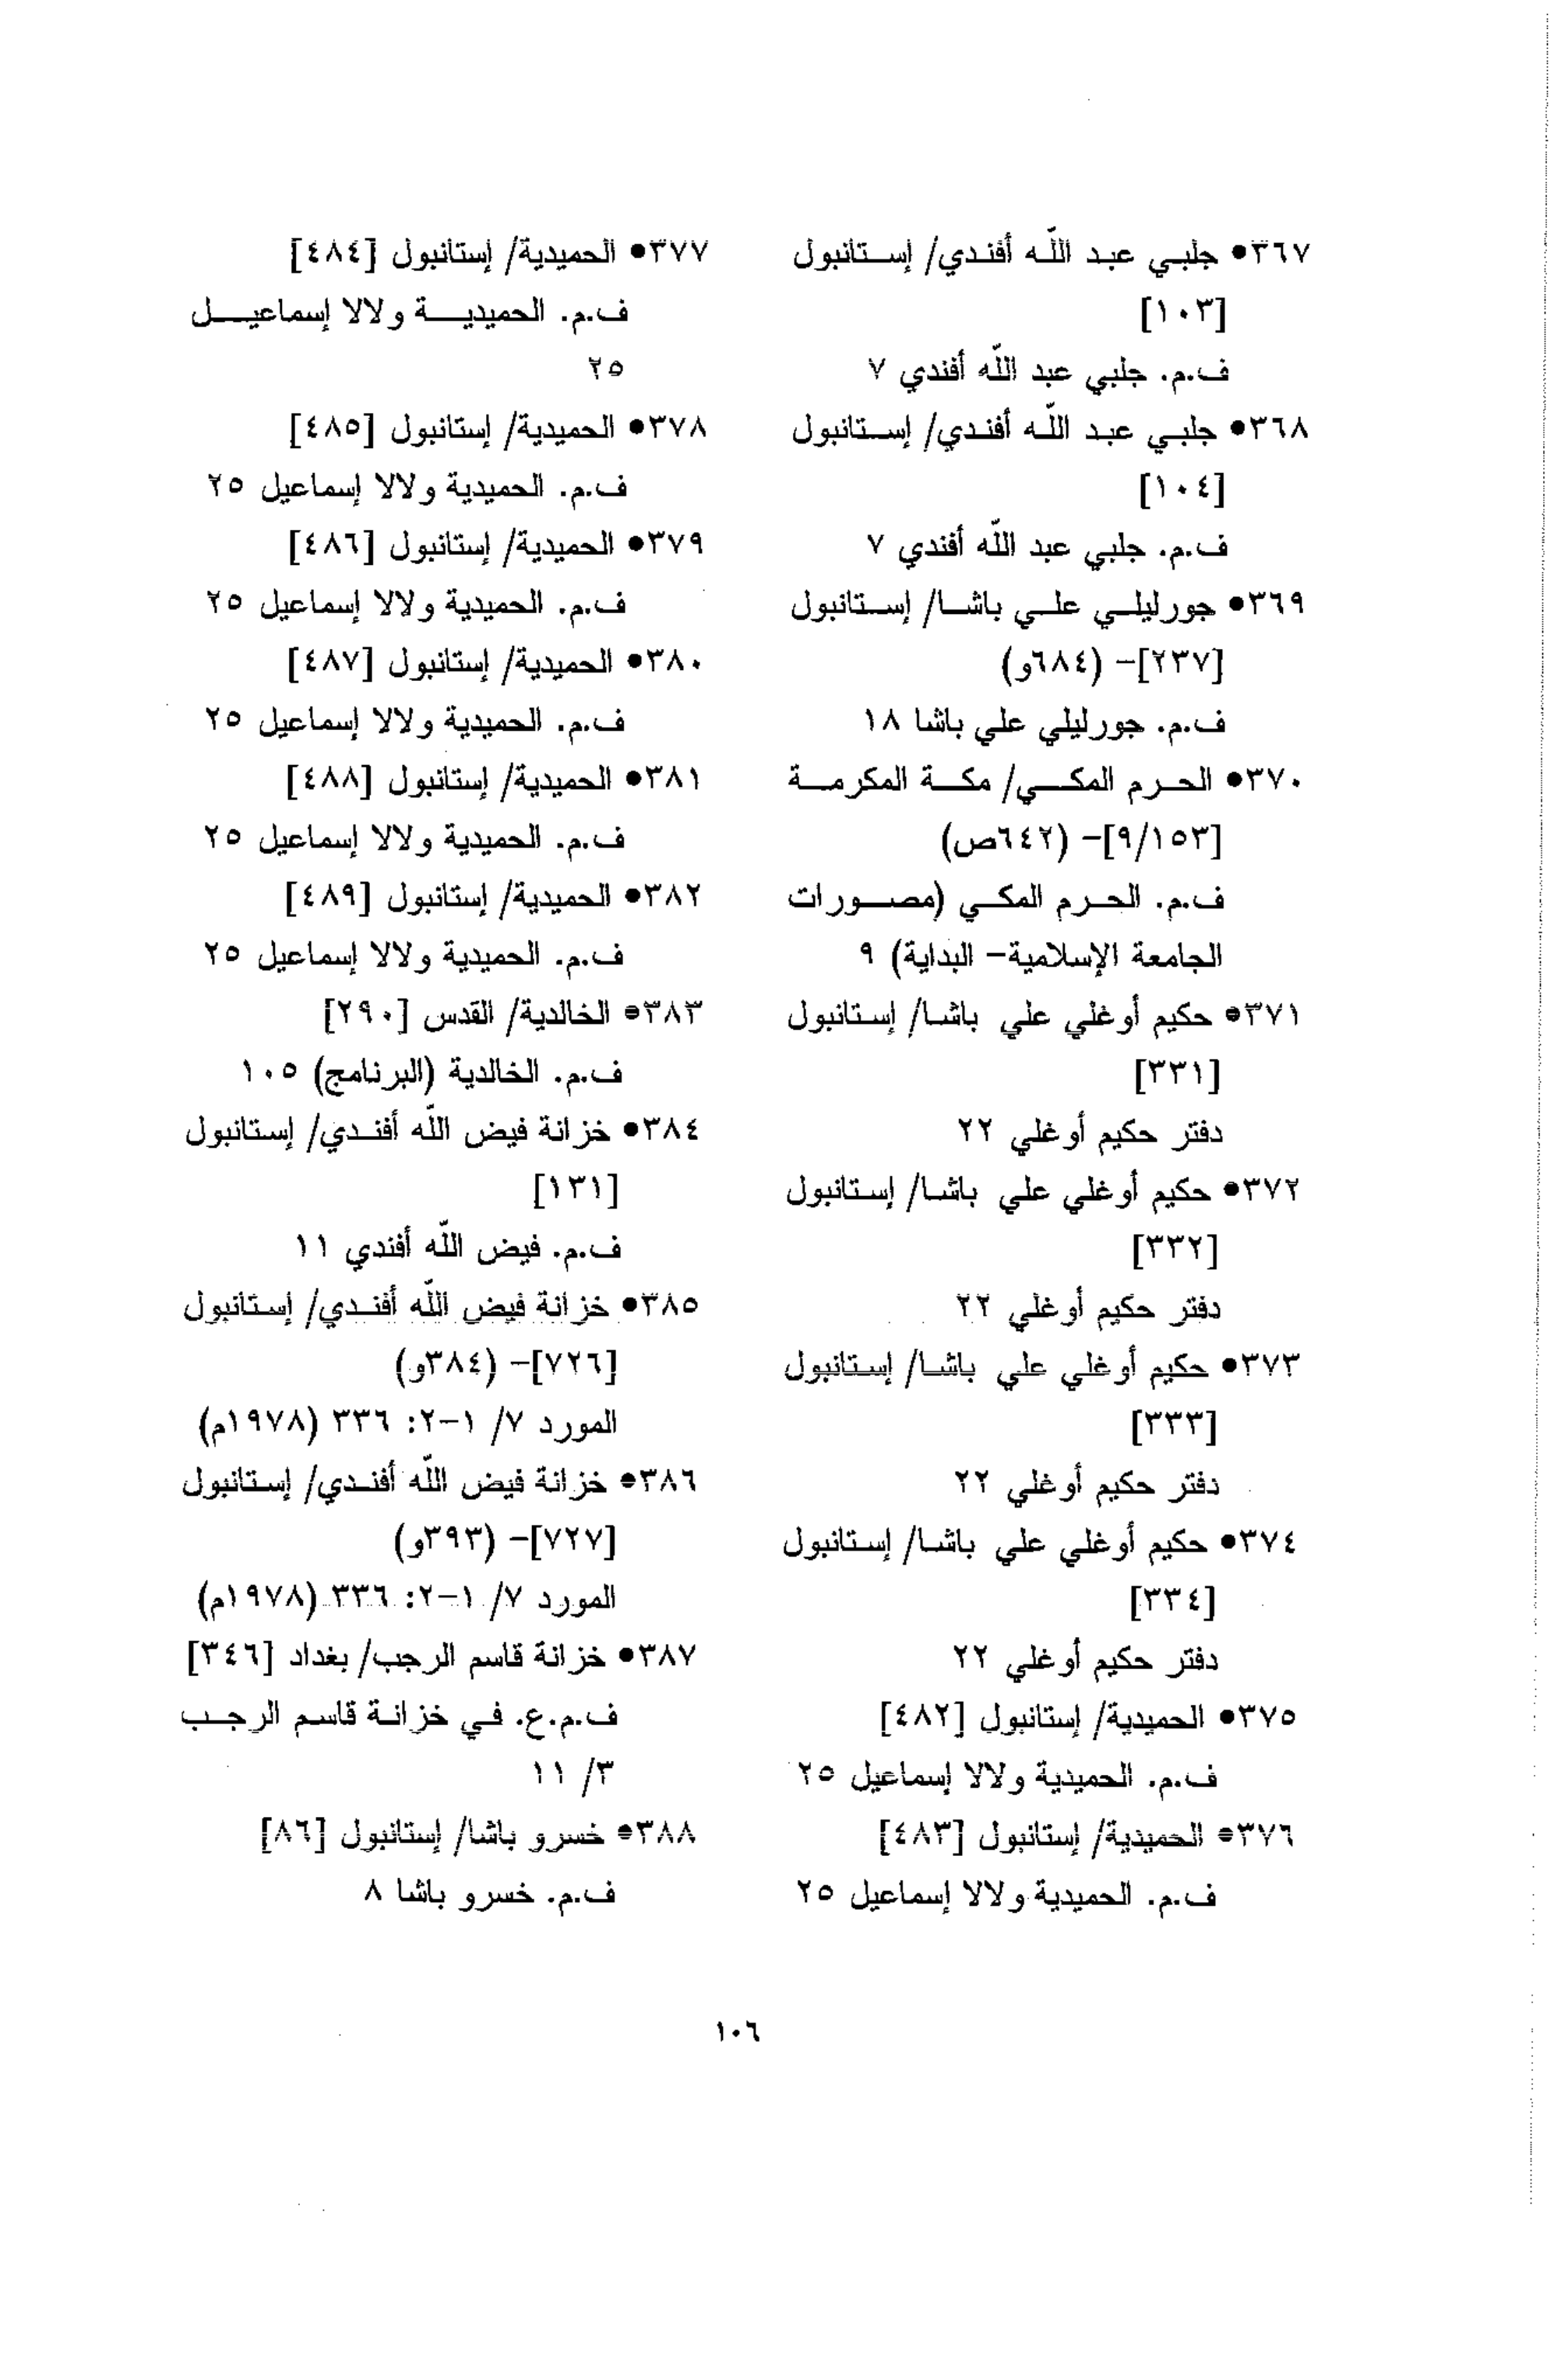 ٣٦٧• جلبي عبد اللّه أفندي/ إستانبول
[١٠٣]
ف.م. جلبي عبد اللّه أفندي ٧
٣٦٨• جلبي عبد اللّه أفندي/ إستانبول
[١٠٤]
ف.م. جلبي عبد اللّه أفندي ٧
٣٦٩• جورليلي علي باشا/ إستانبول
[٢٣٧]- (٦٨٤و)
ف.م. جورليلي علي باشا ١٨
٣٧٠• الحرم المكي/ مكة المكرمة
[٩/١٥٣]- (٦٤٢ص)
ف.م. الحرم المكي (مصورات
الجامعة الإسلامية- البداية) ٩
٣٧١• حكيم أوغلي علي باشا/ إستانبول
[٣٣١]
دفتر حكيم أوغلي ٢٢
٣٧٢• حكيم أوغلي علي باشا/ إستانبول
[٣٣٢]
دفتر حكيم أوغلي ٢٢
٣٧٣• حكيم أوغلي علي باشا/ إستانبول
[٣٣٣]
دفتر حكيم أوغلي ٢٢
٣٧٤• حكيم أوغلي علي باشا/ إستانبول
[٣٣٤]
دفتر حكيم أوغلي ٢٢
٣٧٥• الحميدية/ إستانبول [٤٨٢]
ف.م. الحميدية ولالا إسماعيل ٢٥
٣٧٦• الحميدية/ إستانبول [٤٨٣]
ف.م. الحميدية ولالا إسماعيل ٢٥
٣٧٧• الحميدية/ إستانبول [٤٨٤]
ف.م. الحميدية ولالا إسماعيل
٢٥
٣٧٨• الحميدية/ إستانبول [٤٨٥]
ف.م. الحميدية ولالا إسماعيل ٢٥
٣٧٩• الحميدية/ إستانبول [٤٨٦]
ف.م. الحميدية ولالا إسماعيل ٢٥
٣٨٠• الحميدية/ إستانبول [٤٨٧]
ف.م. الحميدية ولالا إسماعيل ٢٥
٣٨١• الحميدية/ إستانبول [٤٨٨]
ف.م. الحميدية ولالا إسماعيل ٢٥
٣٨٢• الحميدية/ إستانبول [٤٨٩]
ف.م. الحميدية ولالا إسماعيل ٢٥
٣٨٣• الخالدية/ القدس [٢٩٠]
ف.م. الخالدية (البرنامج) ١٠٥
٣٨٤• خزانة فيض اللّه أفندي/ إستانبول
[١٣١]
ف.م. فيض اللّه أفندي ١١
٣٨٥• خزانة فيض اللّه أفندي/ إستانبول
[٧٢٦]- (٣٨٤و)
المورد ٧/ ١-٢: ٣٣٦ (١٩٧٨م)
٣٨٦• خزانة فيض اللّه أفندي/ إستانبول
[٧٢٧]- (٣٩٣و)
المورد ٧/ ١-٢: ٣٣٦ (١٩٧٨م)
٣٨٧• خزانة قاسم الرجب/ بغداد [٣٤٦]
ف.م.ع. في خزانة قاسم الرجب
٣/ ١١
٣٨٨• خسرو باشا/ إستانبول [٨٦]
ف.م. خسرو باشا ٨
١٠٦